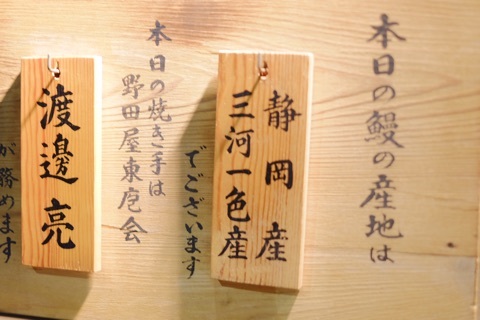 本日の鰻の産地は
静岡産
三河一色産
でございます
本日の焼き手は
野田屋東庖会
渡邊亮
が務めます